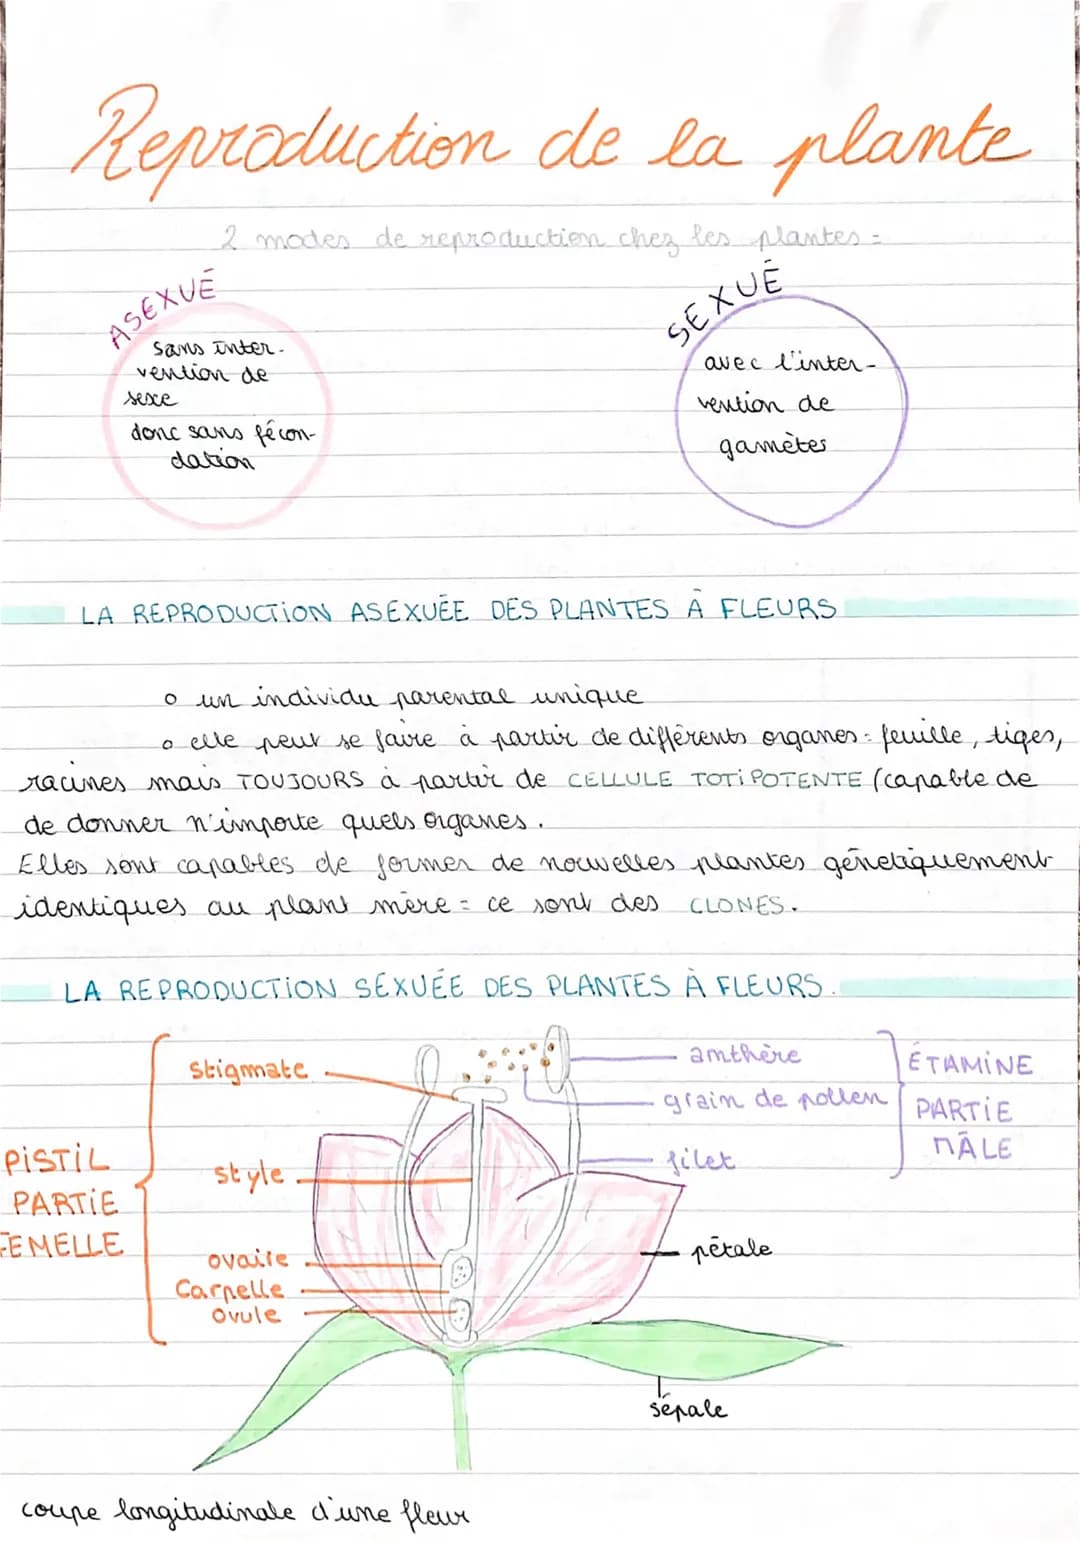 Reproduction de la plante
2 modes de reproduction chez les plantes =
ASEXUÉ
sans inter-
vention de
sexe
donc sans fécon-
dation
SEXUÉ
avec l'inter-
vention de
gamètes
LA REPRODUCTION ASEXUÉE DES PLANTES À FLEURS
o un individu parental unique
o elle peut se faire à partir de différents organes = feuille, tiges,
racines mais TOUJOURS à partir de CELLULE TOTIPOTENTE (capable de
de donner n'importe quels organes.
Elles sont capables de former de nouvelles plantes génétiquement
identiques au plant mère = ce sont des CLONES.
LA REPRODUCTION SÉXUÉE DES PLANTES À FLEURS.
PISTIL
PARTIE
FEMELLE
stigmate
style
ovaire
Carpelle
ovule
anthère
grain de pollen
filet
ÉTAMINE
PARTIE
MÂLE
pétale
sépale
coupe longitudinale d'une fleur